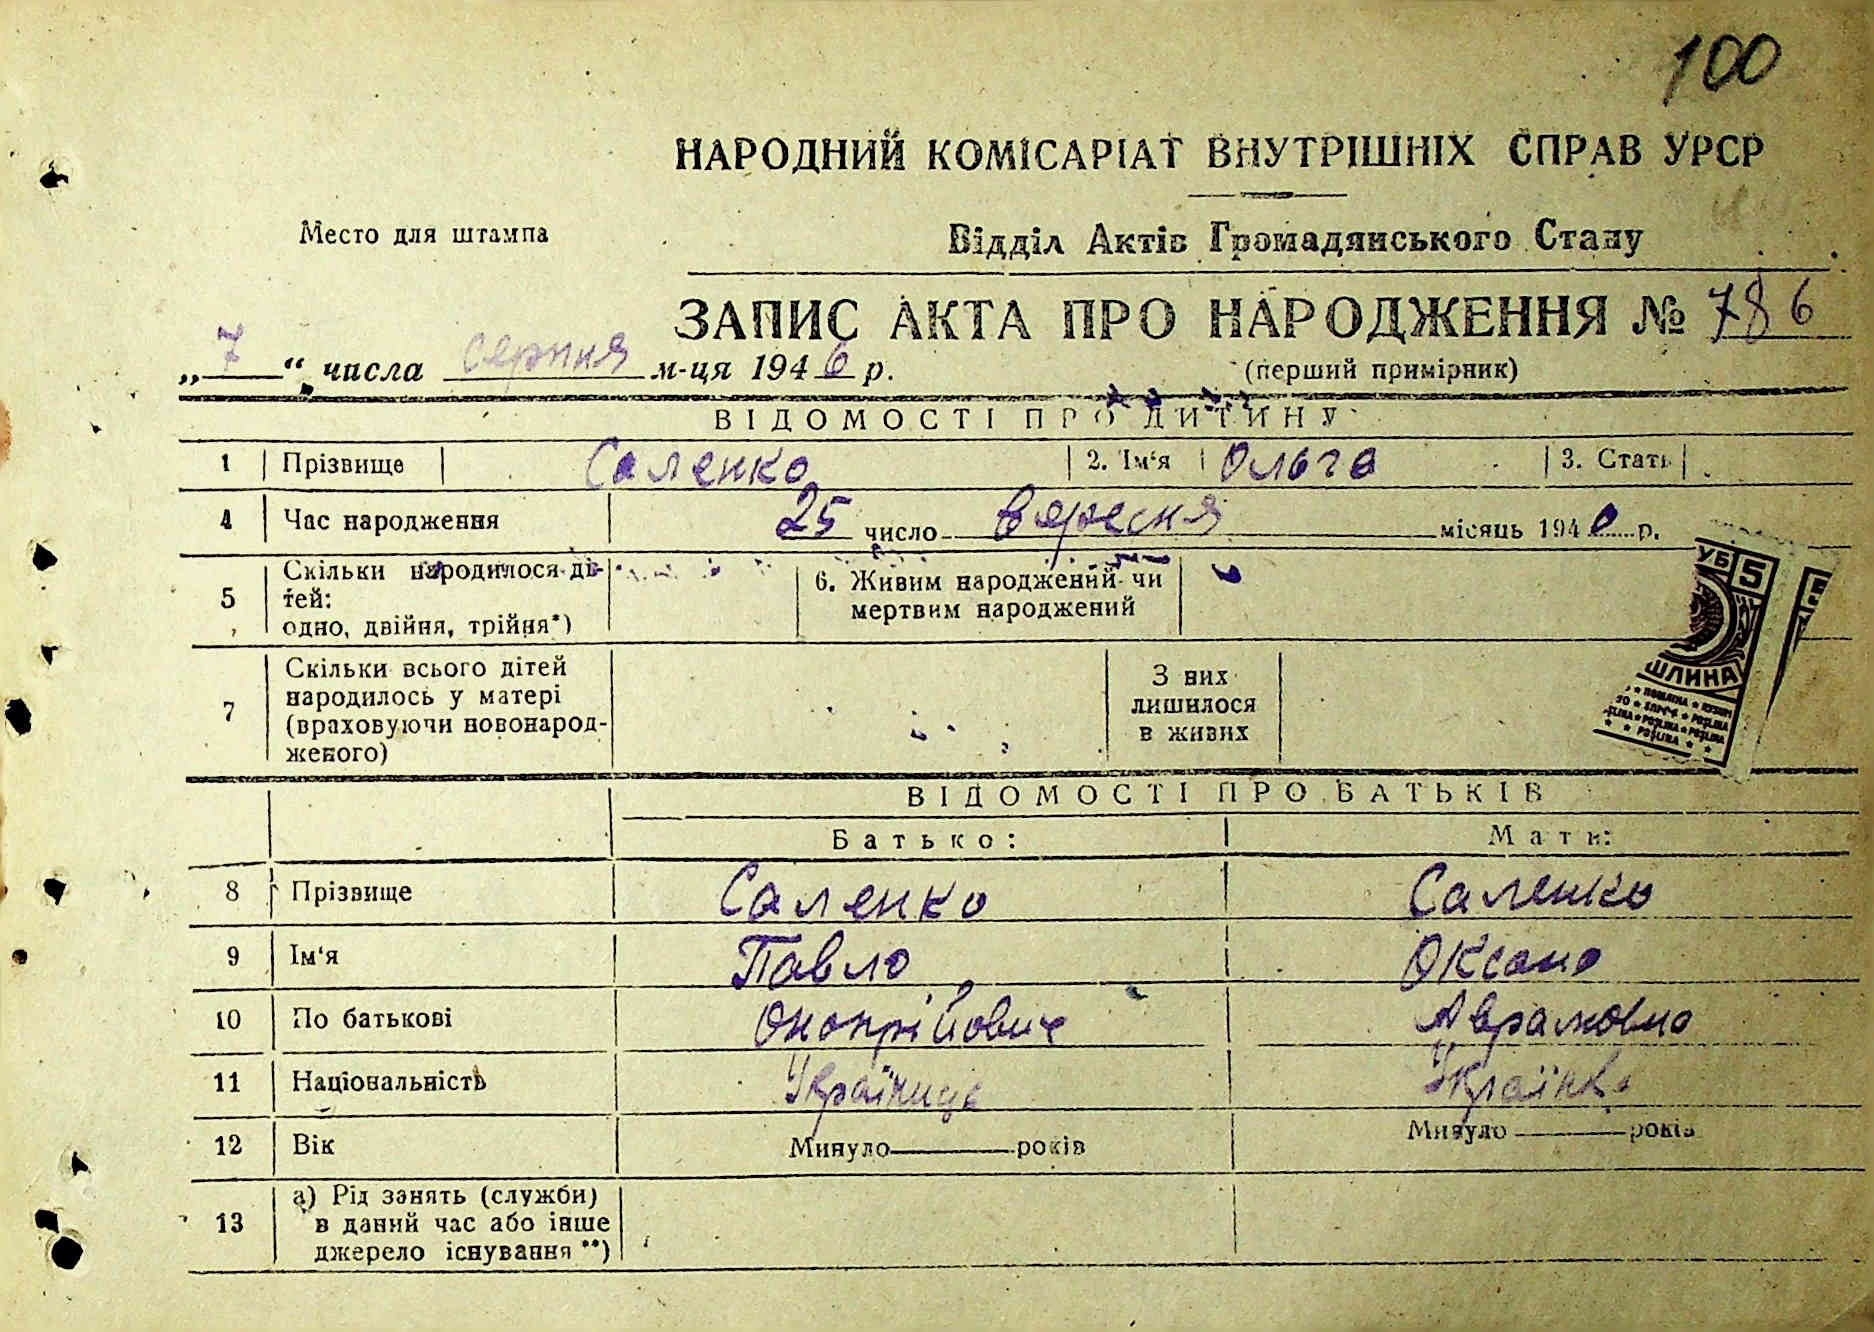 100
НАРОДНИЙ КОМІСАРІАТ ВНУТРІШНІХ СПРАВ УРСР
Место для штампа
Відділ Актів Громадянського Стану
ЗАПИС АКТА ПРО НАРОДЖЕННЯ № 786
„7“ числа серпня м-ця 1946 р.
(перший примірник)
ВІДОМОСТІ ПРО ДИТИНУ
1 Прізвище Саленко 2. Ім‘я Ольга 3. Стать
4 Час народження 25 число вересня місяць 1940 р.
5 Скільки народилося ді-
тей:
одно, двійня, трійня*)
6. Живим народжений чи
мертвим народжений
7 Скільки всього дітей
народилось у матері
(враховуючи новонарод-
женого)
З них
лишилося
в живих
УБ 5
ШЛИНА
ВІДОМОСТІ ПРО БАТЬКІВ
Батько: Мати:
8 Прізвище Саленко Саленко
9 Ім‘я Павло Оксана
10 По батькові Онопрійович Аврамовна
11 Національність Українець Українка
12 Вік Минуло років Минуло років
13 а) Рід занять (служби)
в даний час або інше
джерело існування **)